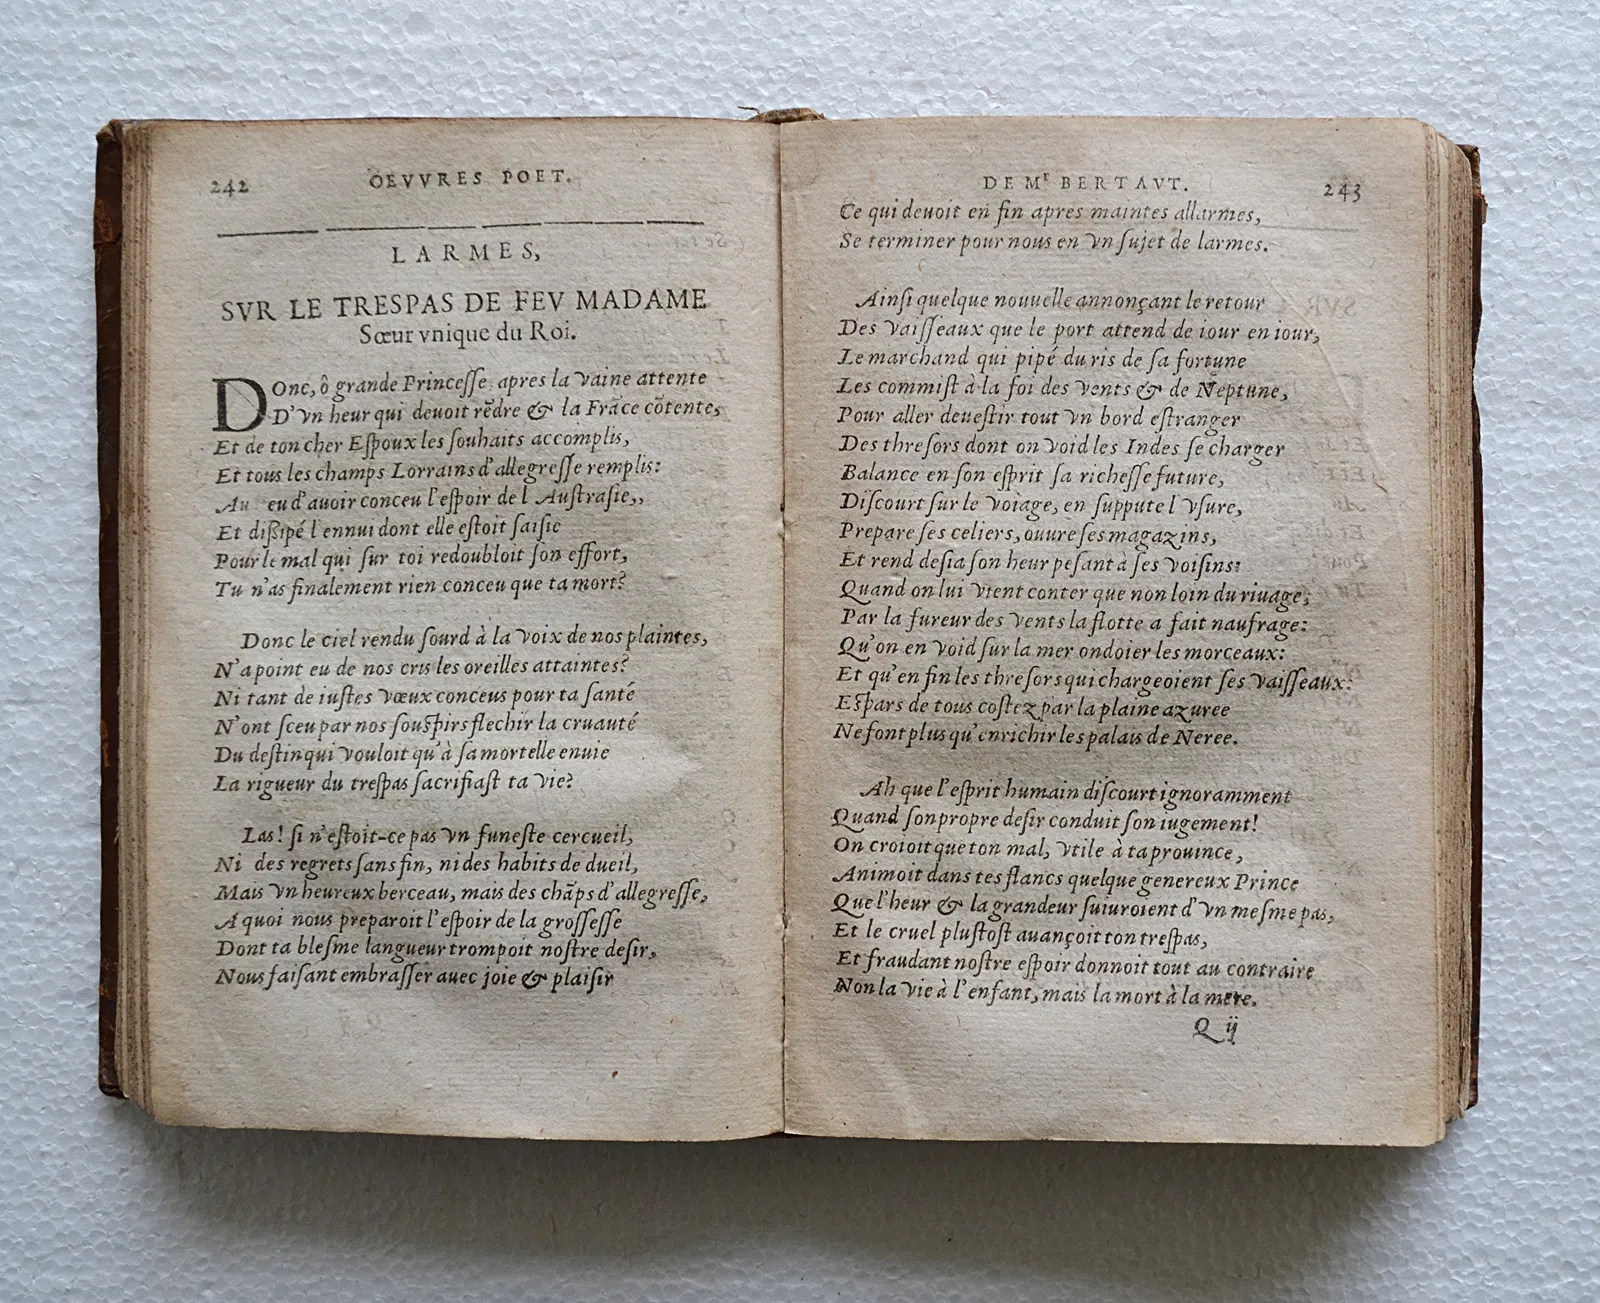 242 OEVVRES POET.
LARMES,
SVR LE TRESPAS DE FEV MADAME
Sœur vnique du Roi.
DOnc, ô grande Princeſſe, apres la vaine attente
D'vn heur qui deuoit rēdre & la Frãce cõtente,
Et de ton cher Eſpoux les ſouhaits accomplis,
Et tous les champs Lorrains d'allegreſſe remplis:
Au eu d'auoir conceu l'eſpoir de l'Auſtraſie,,
Et diſſipé l'ennui dont elle eſtoit ſaiſie
Pour le mal qui ſur toi redoubloit ſon effort,
Tu n'as finalement rien conceu que ta mort?
Donc le ciel rendu ſourd à la voix de nos plaintes,
N'a point eu de nos cris les oreilles attaintes?
Ni tant de iuſtes vœux conceus pour ta ſanté
N'ont ſceu par nos souſpirs flechir la cruauté
Du deſtin qui vouloit qu'à ſa mortelle enuie
La rigueur du treſpas ſacrifiaſt ta vie?
Las! ſi n'eſtoit-ce pas vn funeſte cercueil,
Ni des regrets ſans fin, ni des habits de dueil,
Mais vn heureux berceau, mais des chãps d'allegreſſe,
A quoi nous preparoit l'eſpoir de la groſſeſſe
Dont ta bleſme langueur trompoit noſtre deſir,
Nous faiſant embraſſer auec joie & plaiſir
DE Mr BERTAVT. 243
Ce qui deuoit en fin apres maintes allarmes,
Se terminer pour nous en vn ſujet de larmes.
Ainſi quelque nouuelle annonçant le retour
Des vaiſſeaux que le port attend de iour en iour,
Le marchand qui pipé du ris de ſa fortune
Les commiſt à la foi des vents & de Neptune,
Pour aller deueſtir tout vn bord eſtranger
Des threſors dont on void les Indes ſe charger
Balance en ſon eſprit ſa richeſſe future,
Diſcourt ſur le voiage, en ſuppute l'vſure,
Prepare ſes celiers, ouure ſes magazins,
Et rend deſia ſon heur peſant à ſes voiſins:
Quand on lui vient conter que non loin du riuage,
Par la fureur des vents la flotte a fait naufrage:
Qu'on en void ſur la mer ondoier les morceaux:
Et qu'en fin les threſors qui chargeoient ſes vaiſſeaux:
Eſpars de tous coſtez par la plaine azuree
Ne font plus qu'enrichir les palais de Neree.
Ah que l'eſprit humain diſcourt ignoramment
Quand ſon propre deſir conduit ſon iugement!
On croioit que ton mal, vtile à ta prouince,
Animoit dans tes flancs quelque genereux Prince
Que l'heur & la grandeur ſuiuroient d'vn meſme pas,
Et le cruel pluſtoſt auançoit ton treſpas,
Et fraudant noſtre eſpoir donnoit tout au contraire
Non la vie à l'enfant, mais la mort à la mere.
Q ij